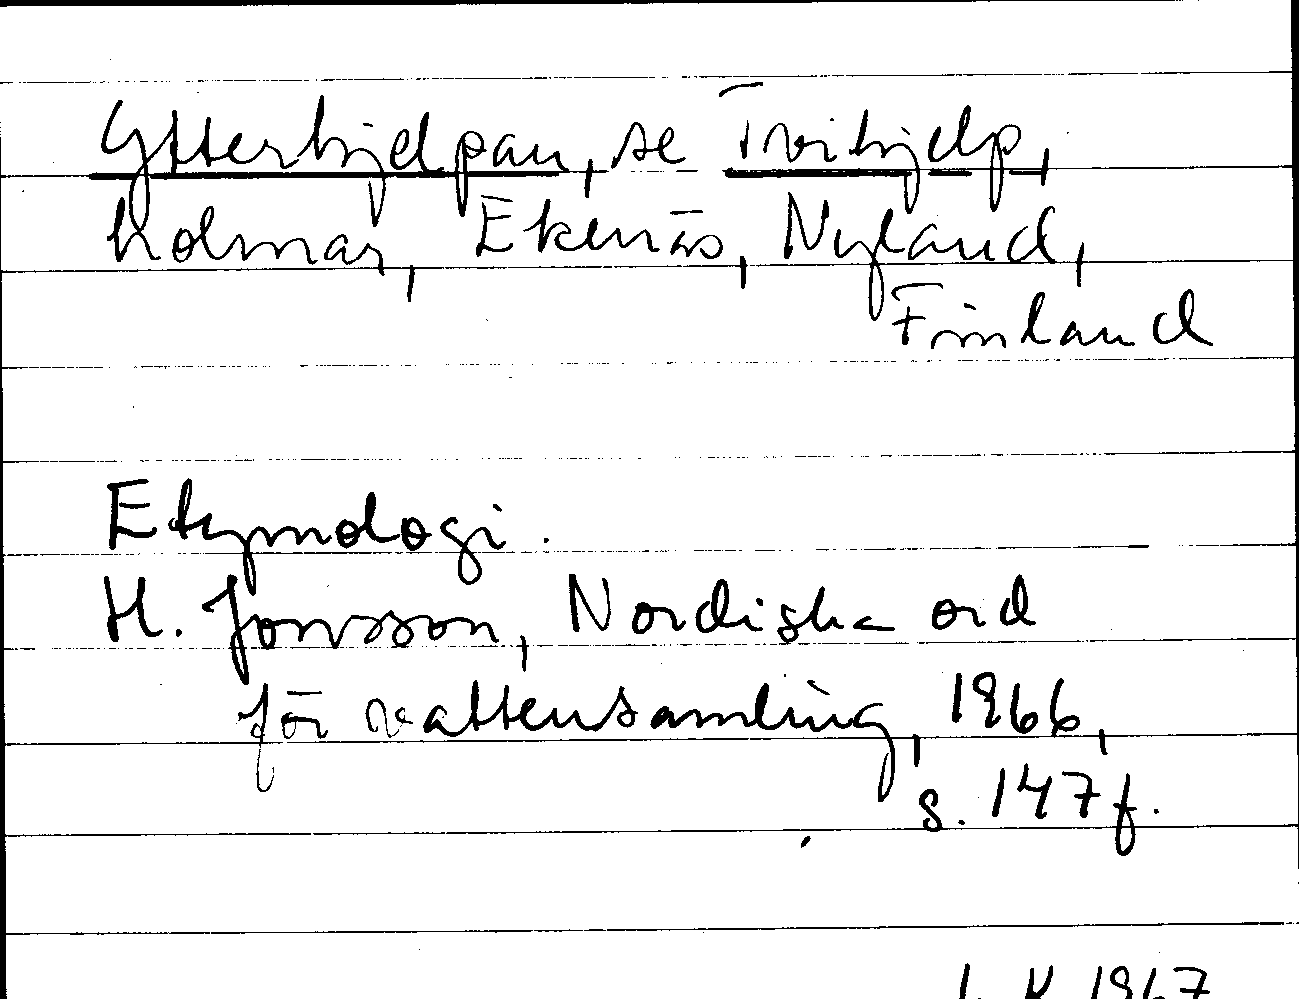 Ytterhjelpan, se Tvihjelp,
holmar, Ekenäs, Nyland,
Finland
Etymologi.
H. Jonsson, Nordiska ord
för vattensamling, 1966,
s. 147f.
L. K. 1967